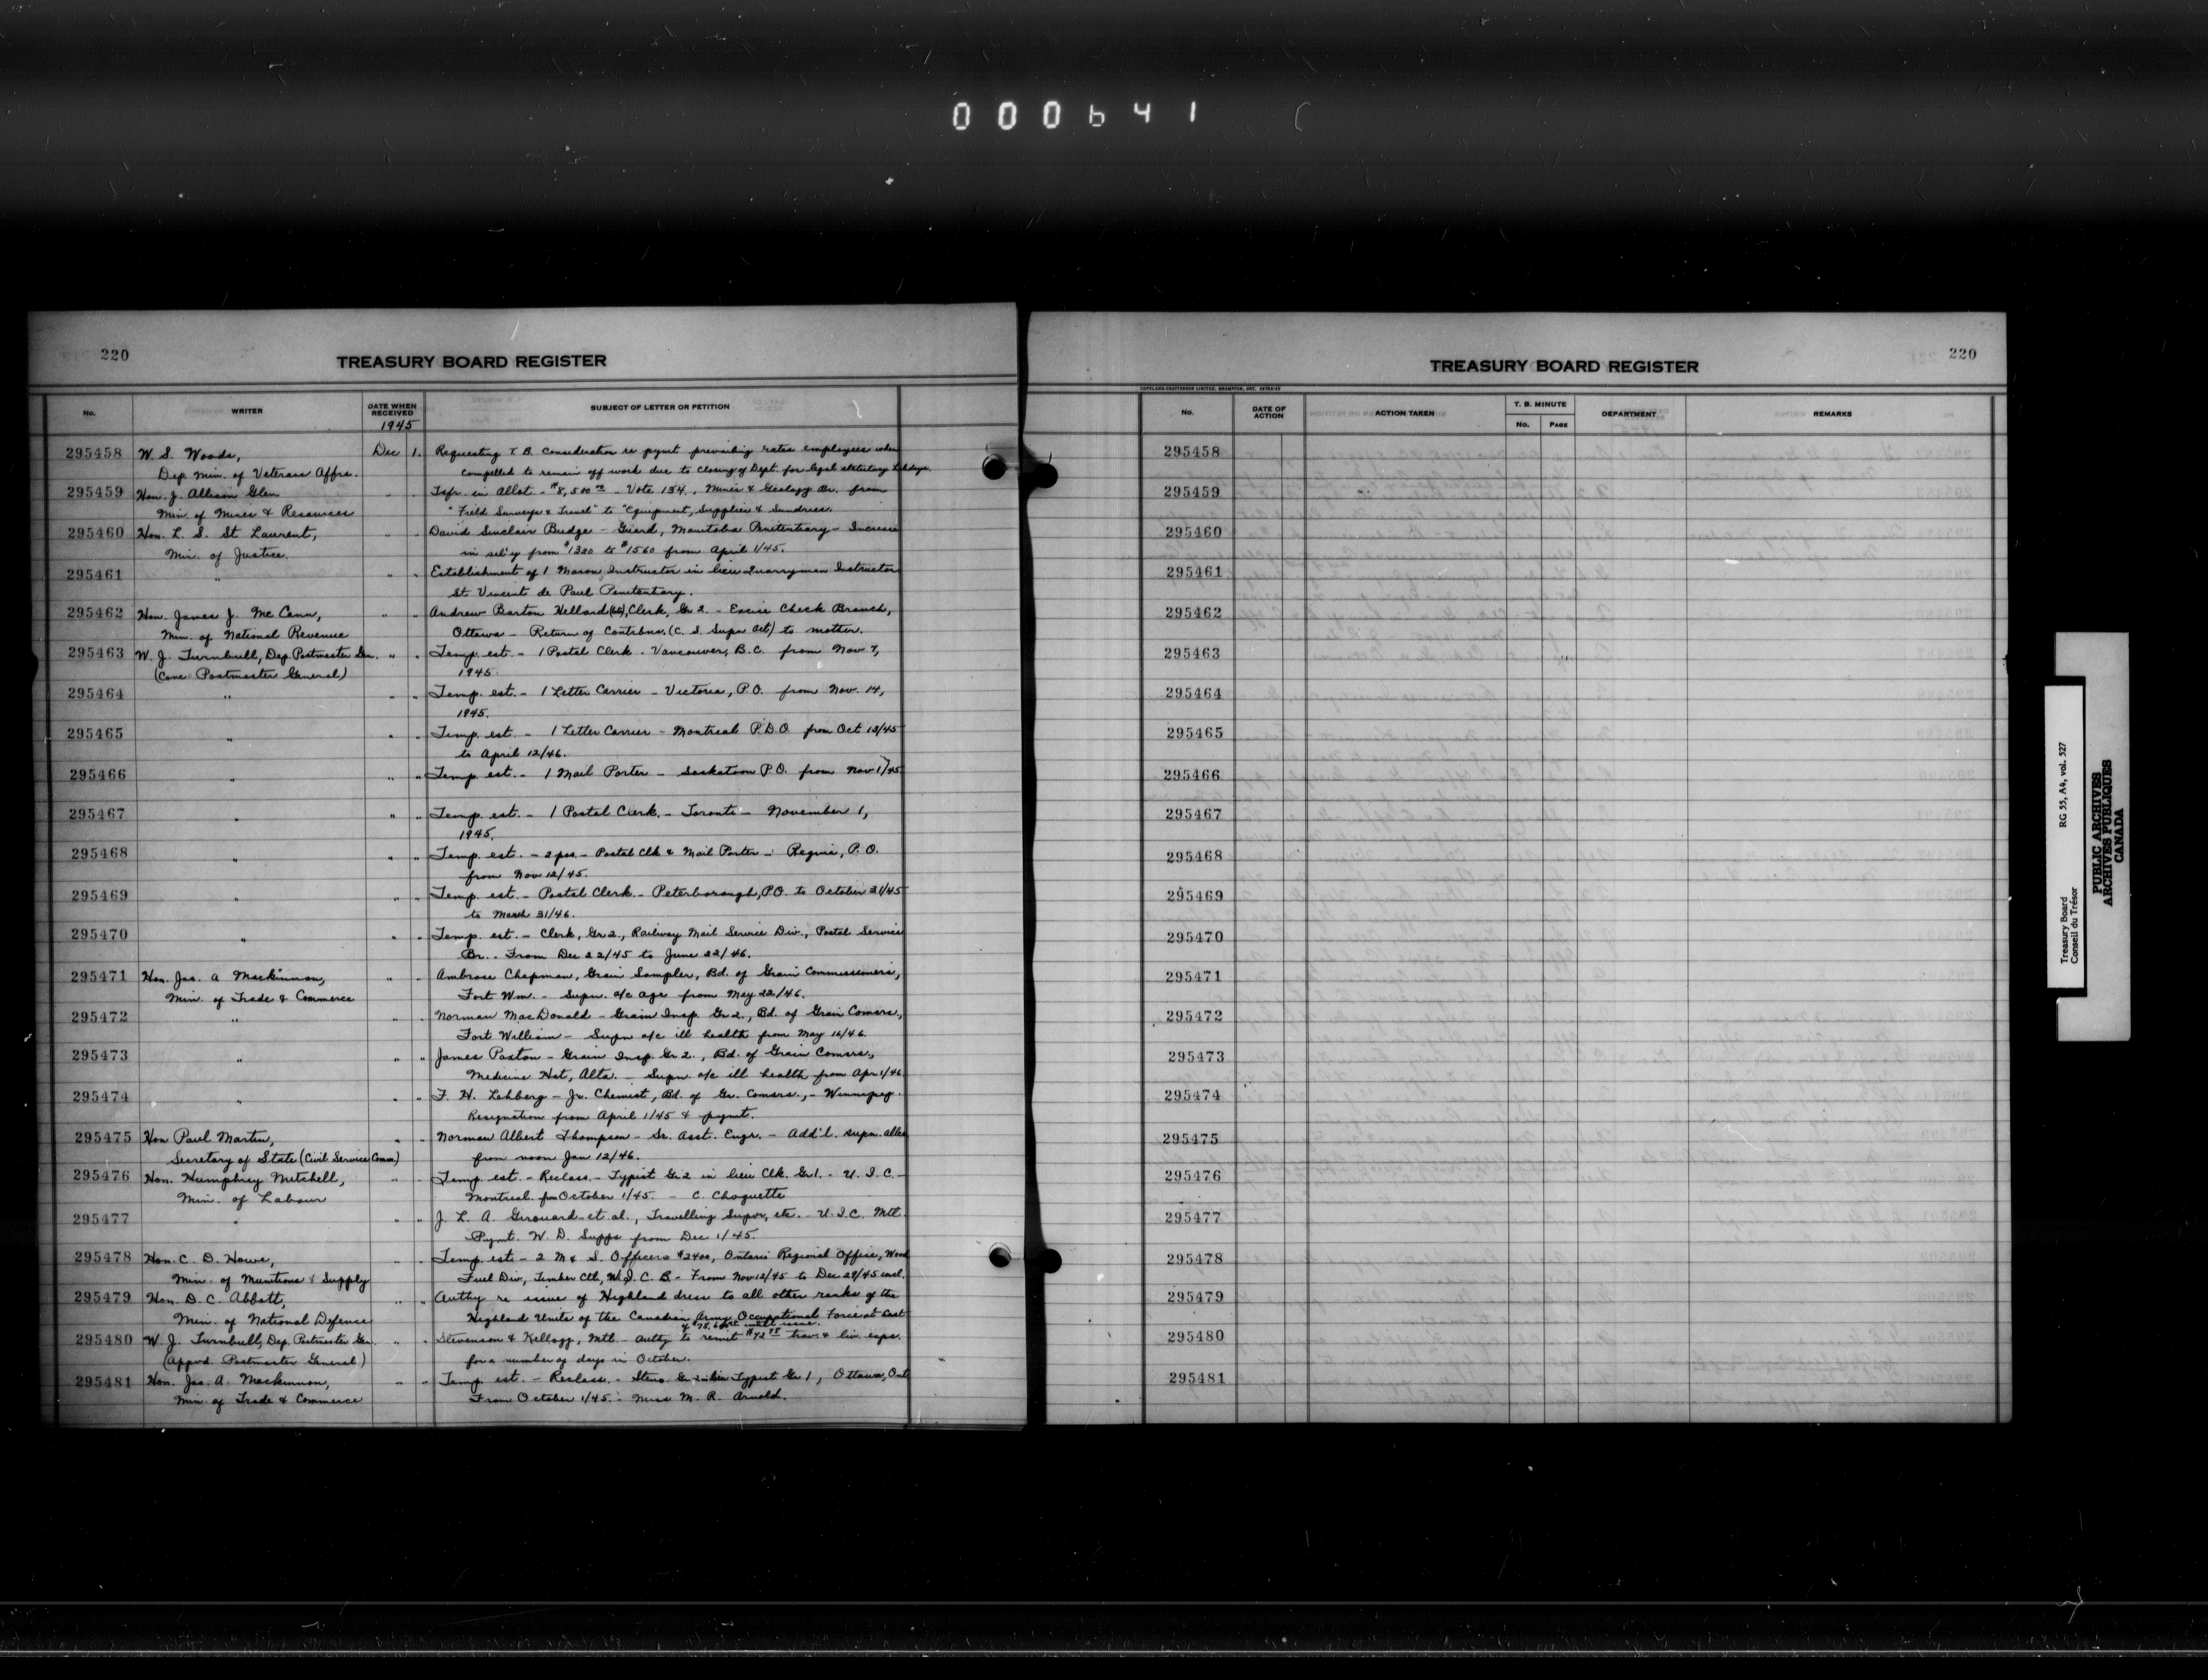 000641
220
TREASURY BOARD REGISTER
No. WRITER DATE WHEN RECEIVED SUBJECT OF LETTER OR PETITION
1945
295458 W. S. Woods, Dec 1. Requesting T. B. consideration re pymt prevailing rates employees when
Dep. Min. of Veterans Affrs. compelled to remain off work due to closing of Dept. for legal statutory holdays.
295459 Hon. J. Allison Glen " " Tsfr. in Allot. - $8,500 00 - Vote 134, Mines & Geology Br. from
Min. of Mines & Resources "Field Surveys & Travel" to "Equipment, Supplies & Sundries.
295460 Hon. L. S. St. Laurent, " " David Sinclair Budge - Guard, Manitoba Penitentiary - Increase
Min. of Justice. in sal'y from $1320 to $1560 from April 1/45.
295461 " " " Establishment of 1 Mason Instructor in lieu Quarryman Instructor
St Vincent de Paul Penitentiary.
295462 Hon. James J. McCann, " " Andrew Barton Hellard, Clerk, Gr 2. - Excise Check Branch,
Min. of National Revenue Ottawa - Return of Contrbns. (C. S. Supn Act) to mother.
295463 W. J. Turnbull, Dep. Postmaster Gen. " " Temp. est. - 1 Postal Clerk. Vancouver, B.C. from Nov 7,
Postmaster General) 1945.
295464 " " " Temp. est. - 1 Letter Carrier - Victoria, P.O. from Nov. 14,
1945.
295465 " " " Temp. est. - 1 Letter Carrier - Montreal P.D.O. from Oct 13/45
to April 12/46.
295466 " " " Temp. est. - 1 Mail Porter - Saskatoon P.O. from Nov 1/45
295467 " " " Temp. est. - 1 Postal Clerk. - Toronto - November 1,
1945.
295468 " " " Temp. est. - 2 pos. - Postal Clk & Mail Porter - Regina, P.O.
from Nov 12/45.
295469 " " " Temp. est. - Postal Clerk. - Peterborough, P.O. to October 31/45
to March 31/46.
295470 " " " Temp. est. - Clerk, Gr 2., Railway Mail Service Div., Postal Service
Br.. From Dec 22/45 to June 22/46.
295471 Hon. Jas. A Mackinnon, " " Ambrose Chapman, Grain Sampler, Bd. of Grain Commissioners,
Min. of Trade & Commerce Fort Wm. - Supn. a/c age from May 22/46.
295472 " " " Norman MacDonald - Grain Insp. Gr 2., Bd. of Grain Comsrs,
Fort William - Supn a/c ill health from May 16/46.
295473 " " " James Paxton - Grain Insp. Gr 2., Bd. of Grain Comsrs.,
Medicine Hat, Alta. - Supn. a/c ill health from Apr 1/46.
295474 " " " F. H. Lehberg - Jr. Chemist, Bd. of Gr. Comsrs., - Winnipeg.
Resignation from April 1/45 & pymt.
295475 Hon Paul Martin, " " Norman Albert Thompson - Sr. Asst. Engr. - Add'l. supn. allce
Secretary of State (Civil Service Comm) from noon Jan 12/46.
295476 Hon. Humphrey Mitchell, " " Temp. est. - Reclass. - Typist Gr 2 in lieu Clk. Gr 1. - U. I. C.
Min. of Labour Montreal. fm October 1/45 - C. Choquette
295477 " " " J. L. A. Girouard et al., Travelling Supvr, etc. - U. I. C. Mtl.
Pymt. W. D. Supps from Dec 1/45.
295478 Hon. C. D. Howe, " " Temp. est - 2 M & S. Officers $2400, Ontario Regional Office, Wood
Min. of Munitions & Supply Fuel Div, Timber Ctl, W. I. C. B - From Nov 12/45 to Dec 29/45 incl.
295479 Hon. D. C. Abbott, " " Authy re issue of Highland dress to all other ranks of the
Min. of National Defence Highland Units of the Canadian Army Occupational Force at cost
295480 W. J. Turnbull, Dep. Postmaster Gen. " " Stevenson & Kellogg, Mtl - authy to remit trav. & liv. exps.
(Appvd. Postmaster General) for a number of days in October.
295481 Hon. Jas. A. Mackinnon, " " Temp est. - Reclass. - Steno Gr 2 in lieu Typist Gr 1, Ottawa, Ont
Min. of Trade & Commerce From October 1/45. - Miss M. R. Arnold.
220
TREASURY BOARD REGISTER
COPELAND-CHATTERSON LIMITED, BRAMPTON, ONT.
No. DATE OF ACTION ACTION TAKEN T. B. MINUTE DEPARTMENT REMARKS
No. PAGE
295458
295459
295460
295461
295462
295463
295464
295465
295466
295467
295468
295469
295470
295471
295472
295473
295474
295475
295476
295477
295478
295479
295480
295481
Treasury Board RG 55, A4, vol. 527
Conseil du Trésor
PUBLIC ARCHIVES
ARCHIVES PUBLIQUES
CANADA